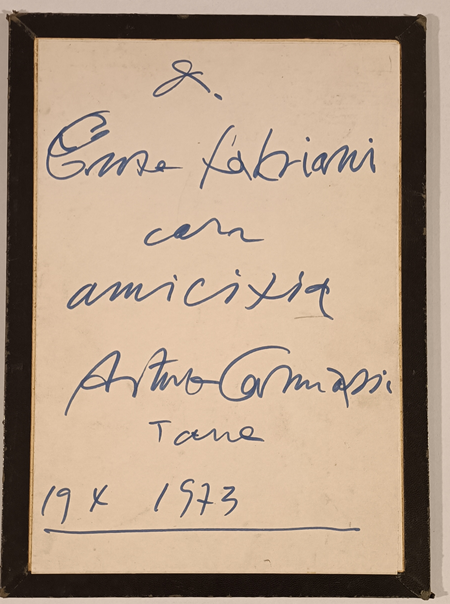 a.
Enzo Fabriani
con
amicizia
Arturo Carmassi
Torre
19 X 1973